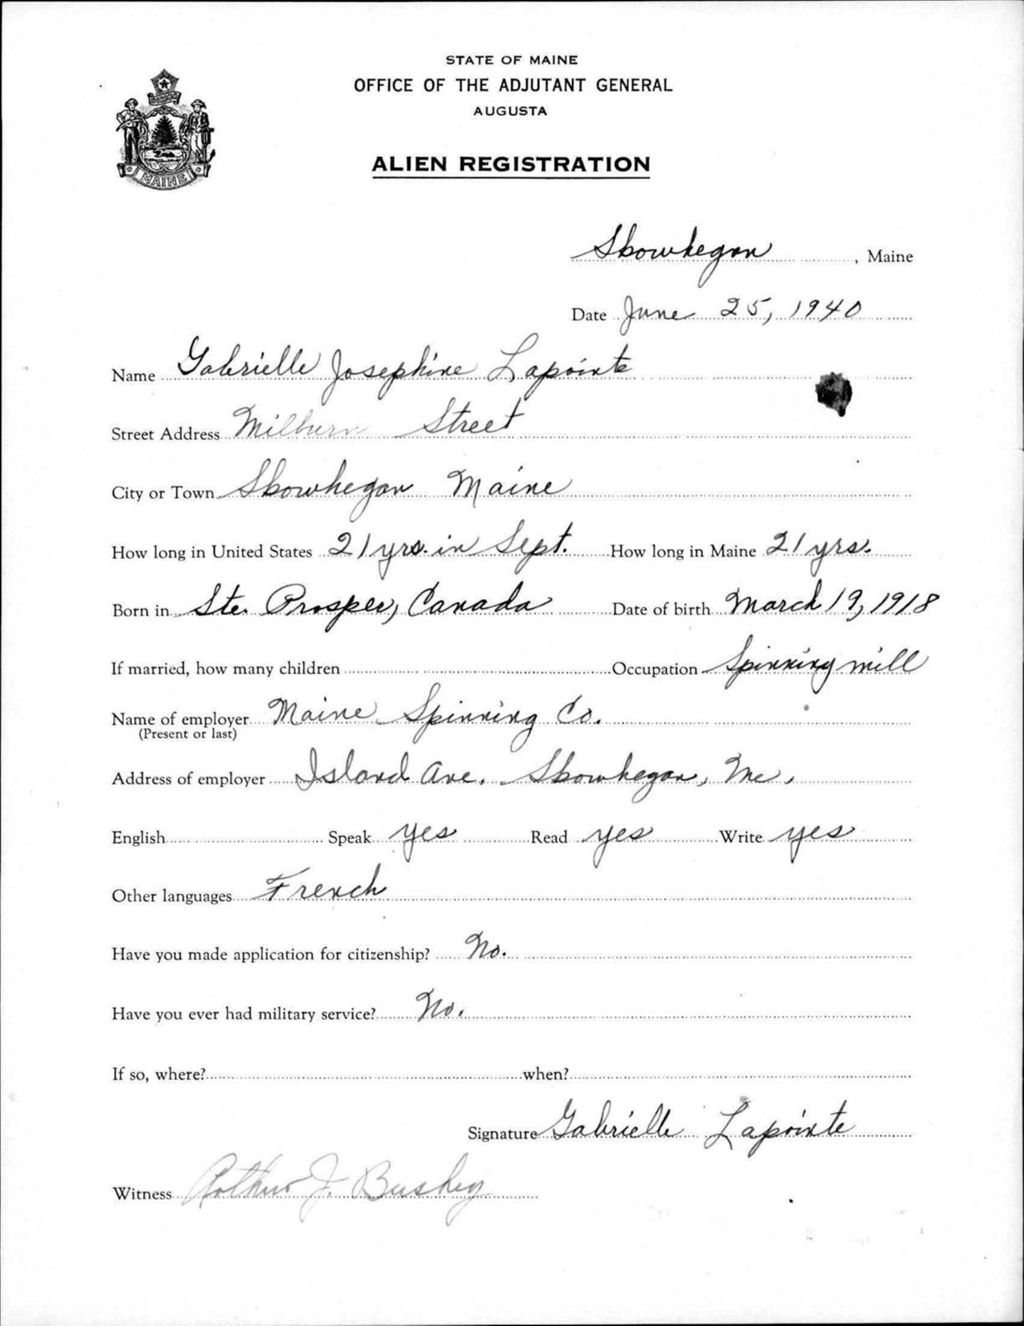 STATE OF MAINE
OFFICE OF THE ADJUTANT GENERAL
AUGUSTA
ALIEN REGISTRATION
MAINE
Skowhegan, Maine
Date June 25, 1940
Name Gabrielle Josephine Lapointe
Street Address Milburn Street
City or Town Skowhegan Maine
How long in United States 21 yrs. in Sept. How long in Maine 21 yrs.
Born in Ste. Prosper, Canada Date of birth March 19, 1918
If married, how many children Occupation Spinning mill
Name of employer Maine Spinning Co.
(Present or last)
Address of employer Island Ave. Skowhegan, Me.
English Speak yes Read yes Write yes
Other languages French
Have you made application for citizenship? No.
Have you ever had military service? No.
If so, where? when?
Signature Gabrielle Lapointe
Witness Arthur J. Bushey